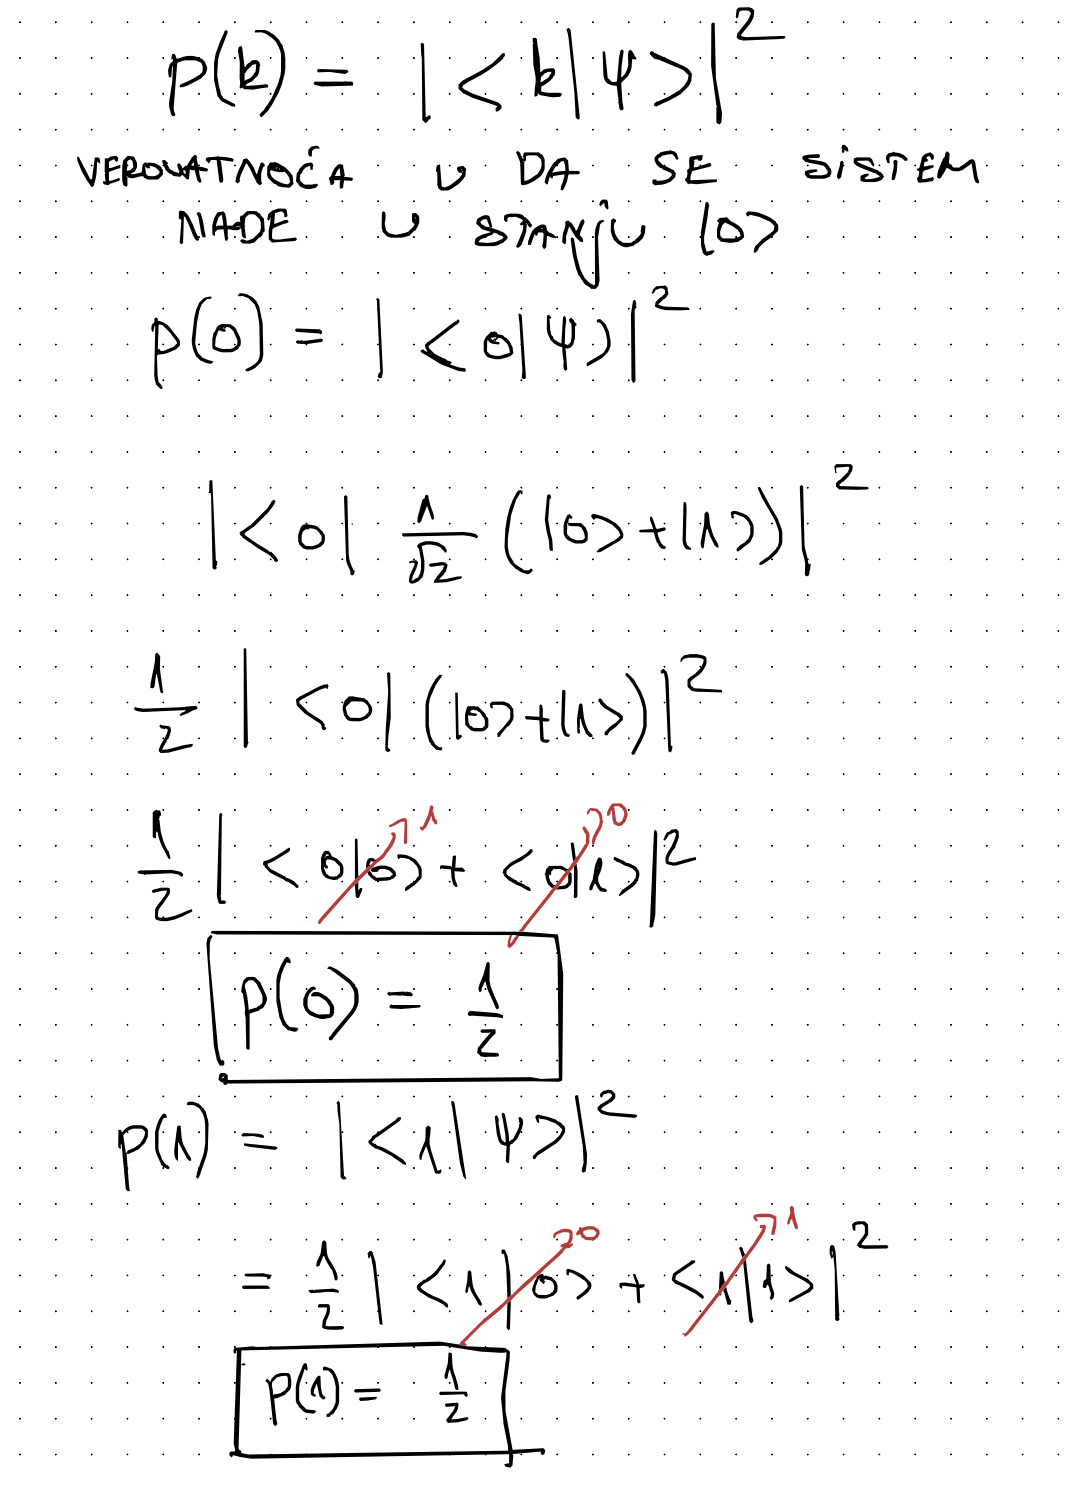 p(k) = |<k|ψ>|²
VEROVATNOĆA U DA SE SISTEM
NADE U STANJU |0>
p(0) = |<0|ψ>|²
|<0| 1/√2 (|0>+|1>)|²
1/2 |<0|(|0>+|1>)|²
1/2 |<0|0> + <0|1>|² 1 0
p(0) = 1/2
p(1) = |<1|ψ>|²
= 1/2 |<1|0> + <1|1>|² 0 1
p(1) = 1/2